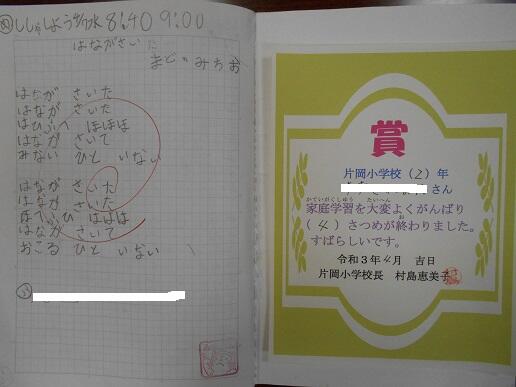 ししゃしょう 8:40 9:00
はながさいた
まど・みちお
はなが さいた
はなが さいた
はひふへ ほほほ
はなが さいて
みない ひと いない
はなが さいた
はなが さいた
ほへふひ ははは
はなが さいて
おこる ひと いない
賞
片岡小学校(2)年
さん
かていがくしゅう たいへん
家庭学習を大変よくがんばり
(4)さつめが終わりました。
すばらしいです。
令和3年4月 吉日
片岡小学校長 村島恵美子